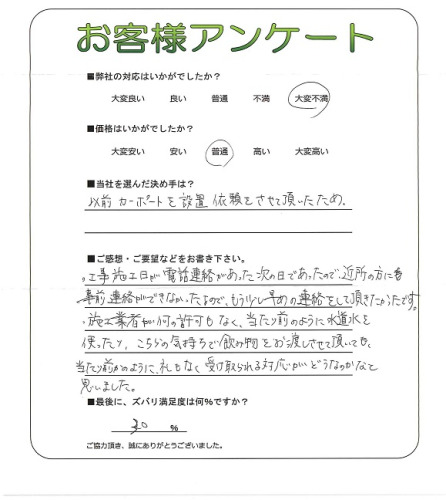 お客様アンケート
■弊社の対応はいかがでしたか？
大変良い 良い 普通 不満 大変不満
■価格はいかがでしたか？
大変安い 安い 普通 高い 大変高い
■当社を選んだ決め手は？
以前 カーポートを設置 依頼をさせて頂いたため.
■ご感想・ご要望などをお書き下さい。
・工事施工日が電話連絡があった次の日であったので、近所の方に
事前連絡ができなかったなので、もう少し早めの連絡をして頂きたかったです。
・施工業者が何の許可もなく、当たり前のように水道水を
使ったり、こちらの気持ちで飲み物をお渡しさせて頂いても、
当たり前かのように、礼もなく受け取られる対応がどうなのかなと
思いました。
■最後に、ズバリ満足度は何%ですか？
30 %
ご協力頂き、誠にありがとうございました。